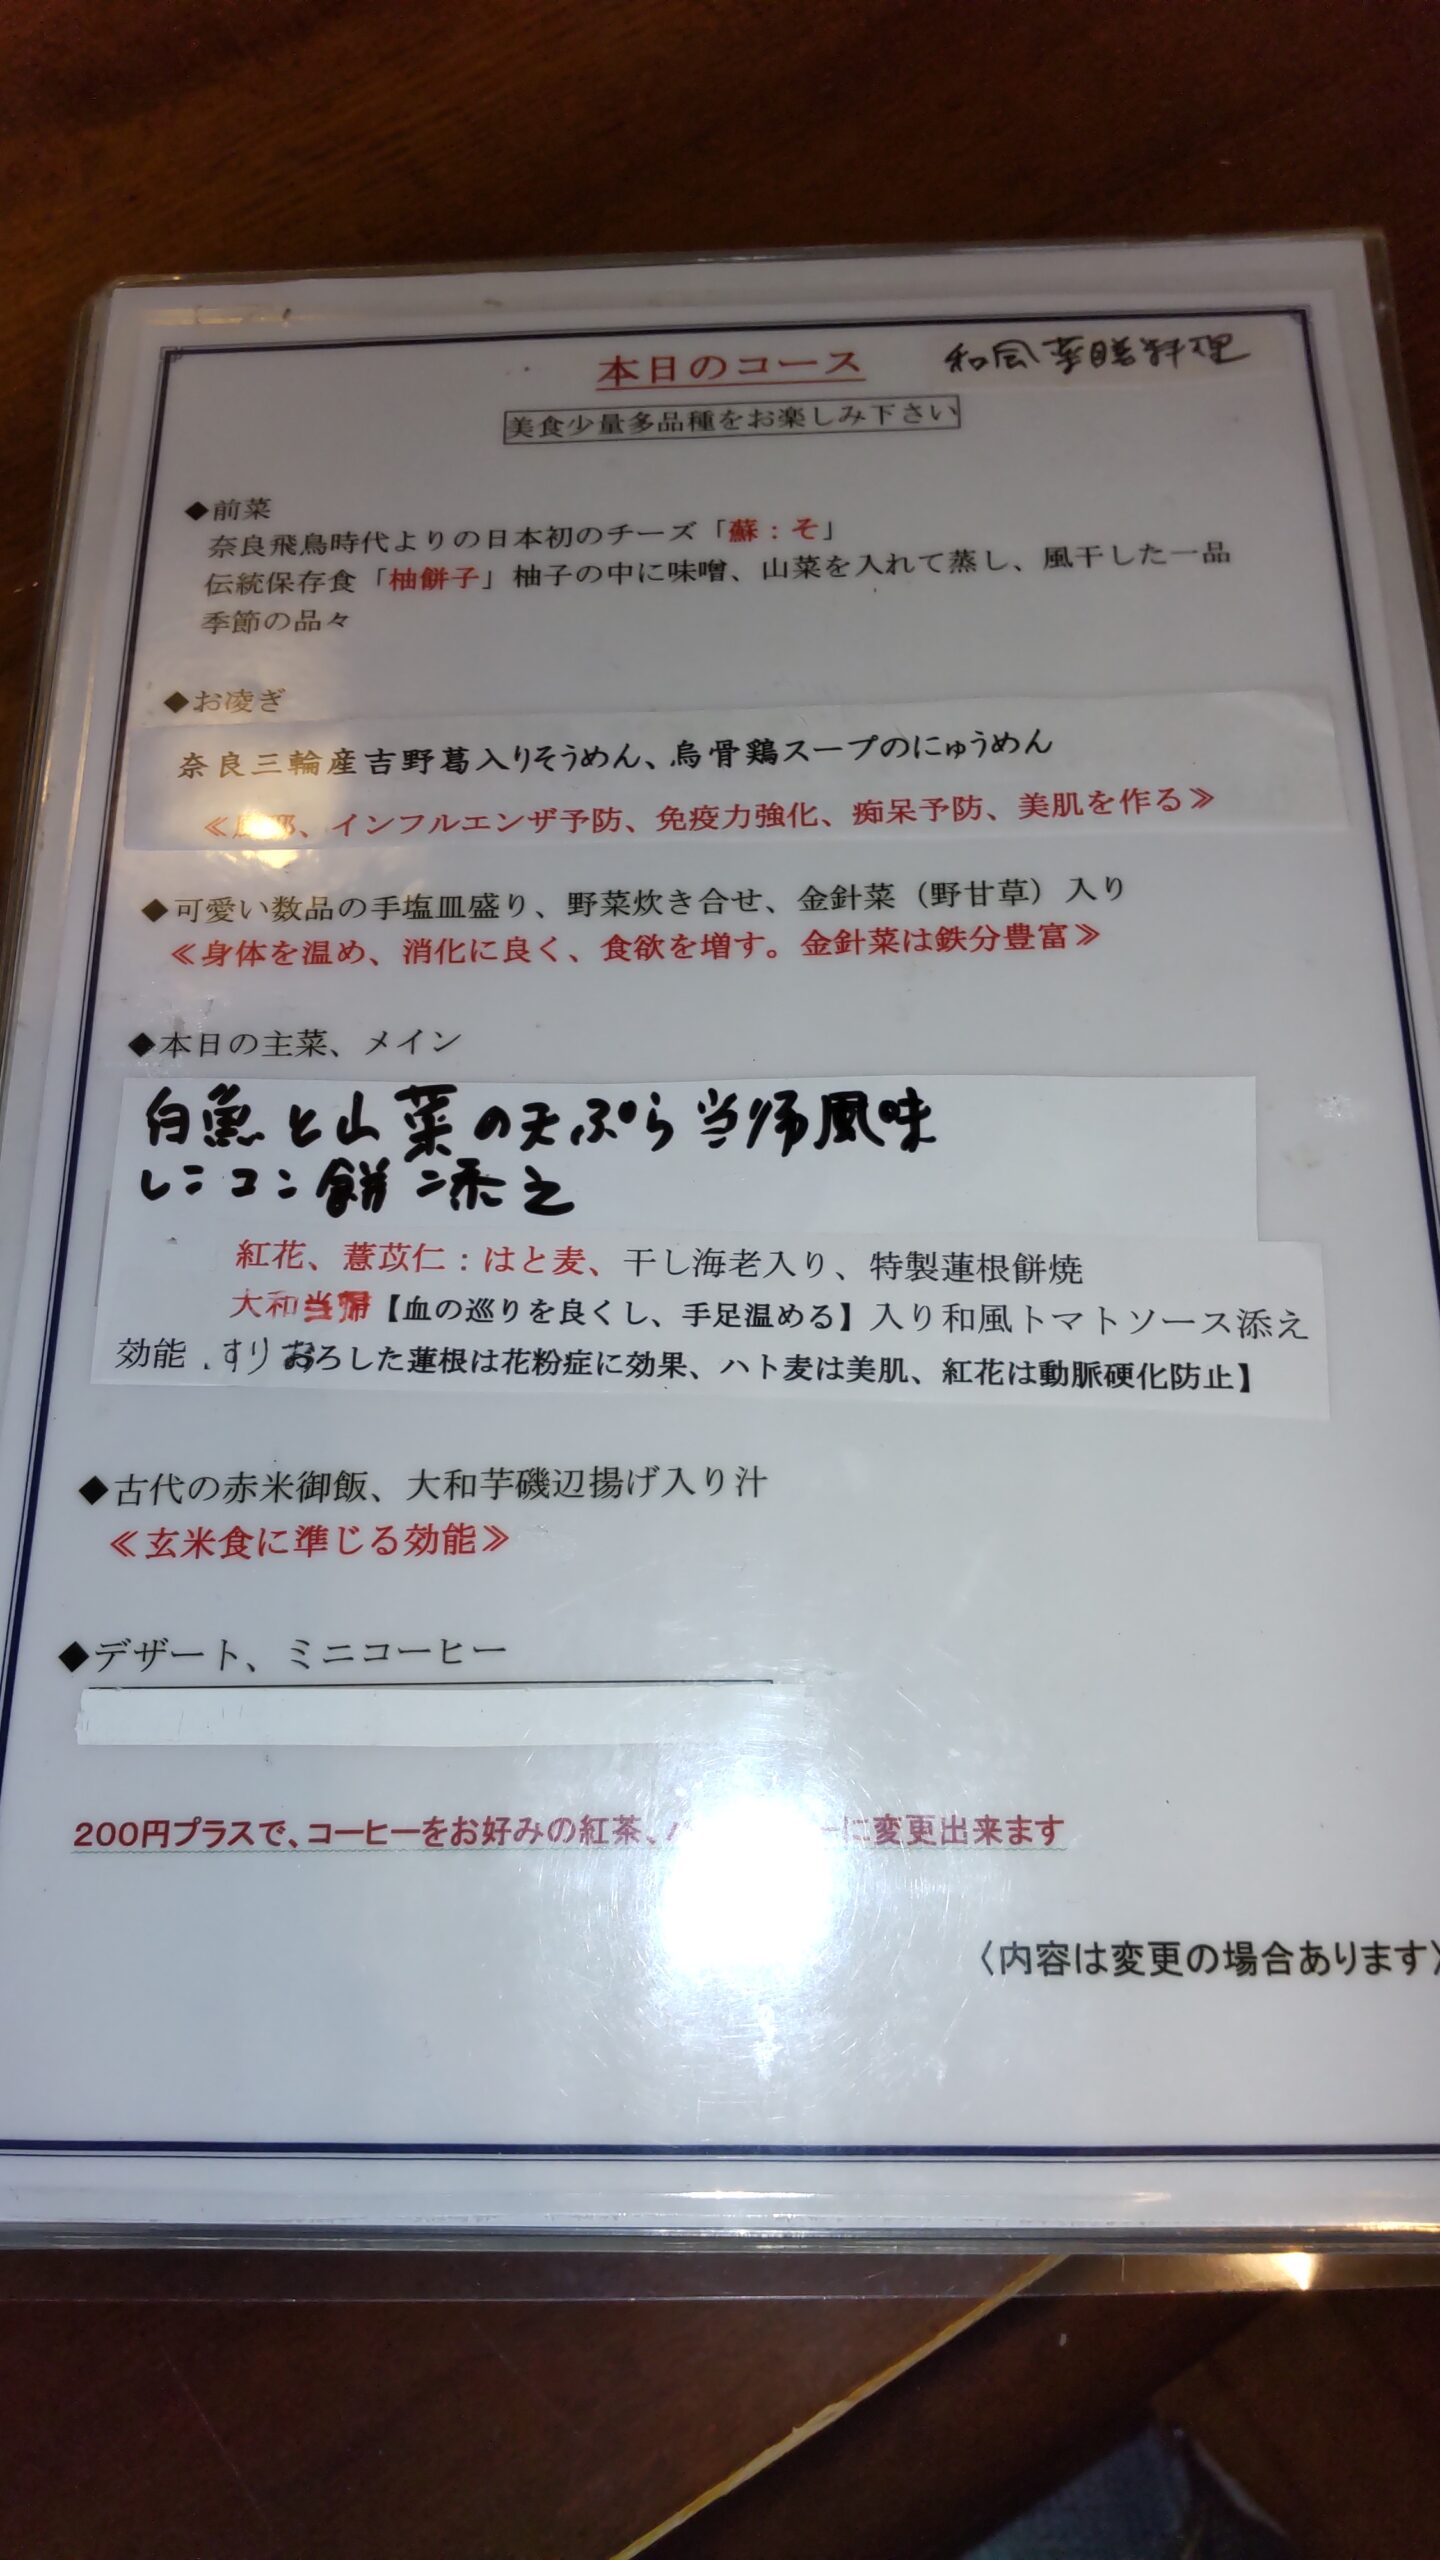 本日のコース
和風薬膳料理
美食少量多品種をお楽しみ下さい
◆前菜
奈良飛鳥時代よりの日本初のチーズ「蘇：そ」
伝統保存食「柚餅子」柚子の中に味噌、山菜を入れて蒸し、風干した一品
季節の品々
◆お凌ぎ
奈良三輪産吉野葛入りそうめん、烏骨鶏スープのにゅうめん
≪風邪、インフルエンザ予防、免疫力強化、痴呆予防、美肌を作る≫
◆可愛い数品の手塩皿盛り、野菜炊き合せ、金針菜（野甘草）入り
≪身体を温め、消化に良く、食欲を増す。金針菜は鉄分豊富≫
◆本日の主菜、メイン
白魚と山菜の天ぷら当帰風味
レンコン餅添え
紅花、薏苡仁：はと麦、干し海老入り、特製蓮根餅焼
大和当帰【血の巡りを良くし、手足温める】入り和風トマトソース添え
効能、すりおろした蓮根は花粉症に効果、ハト麦は美肌、紅花は動脈硬化防止】
◆古代の赤米御飯、大和芋磯辺揚げ入り汁
≪玄米食に準じる効能≫
◆デザート、ミニコーヒー
200円プラスで、コーヒーをお好みの紅茶、ーに変更出来ます
〈内容は変更の場合あります〉